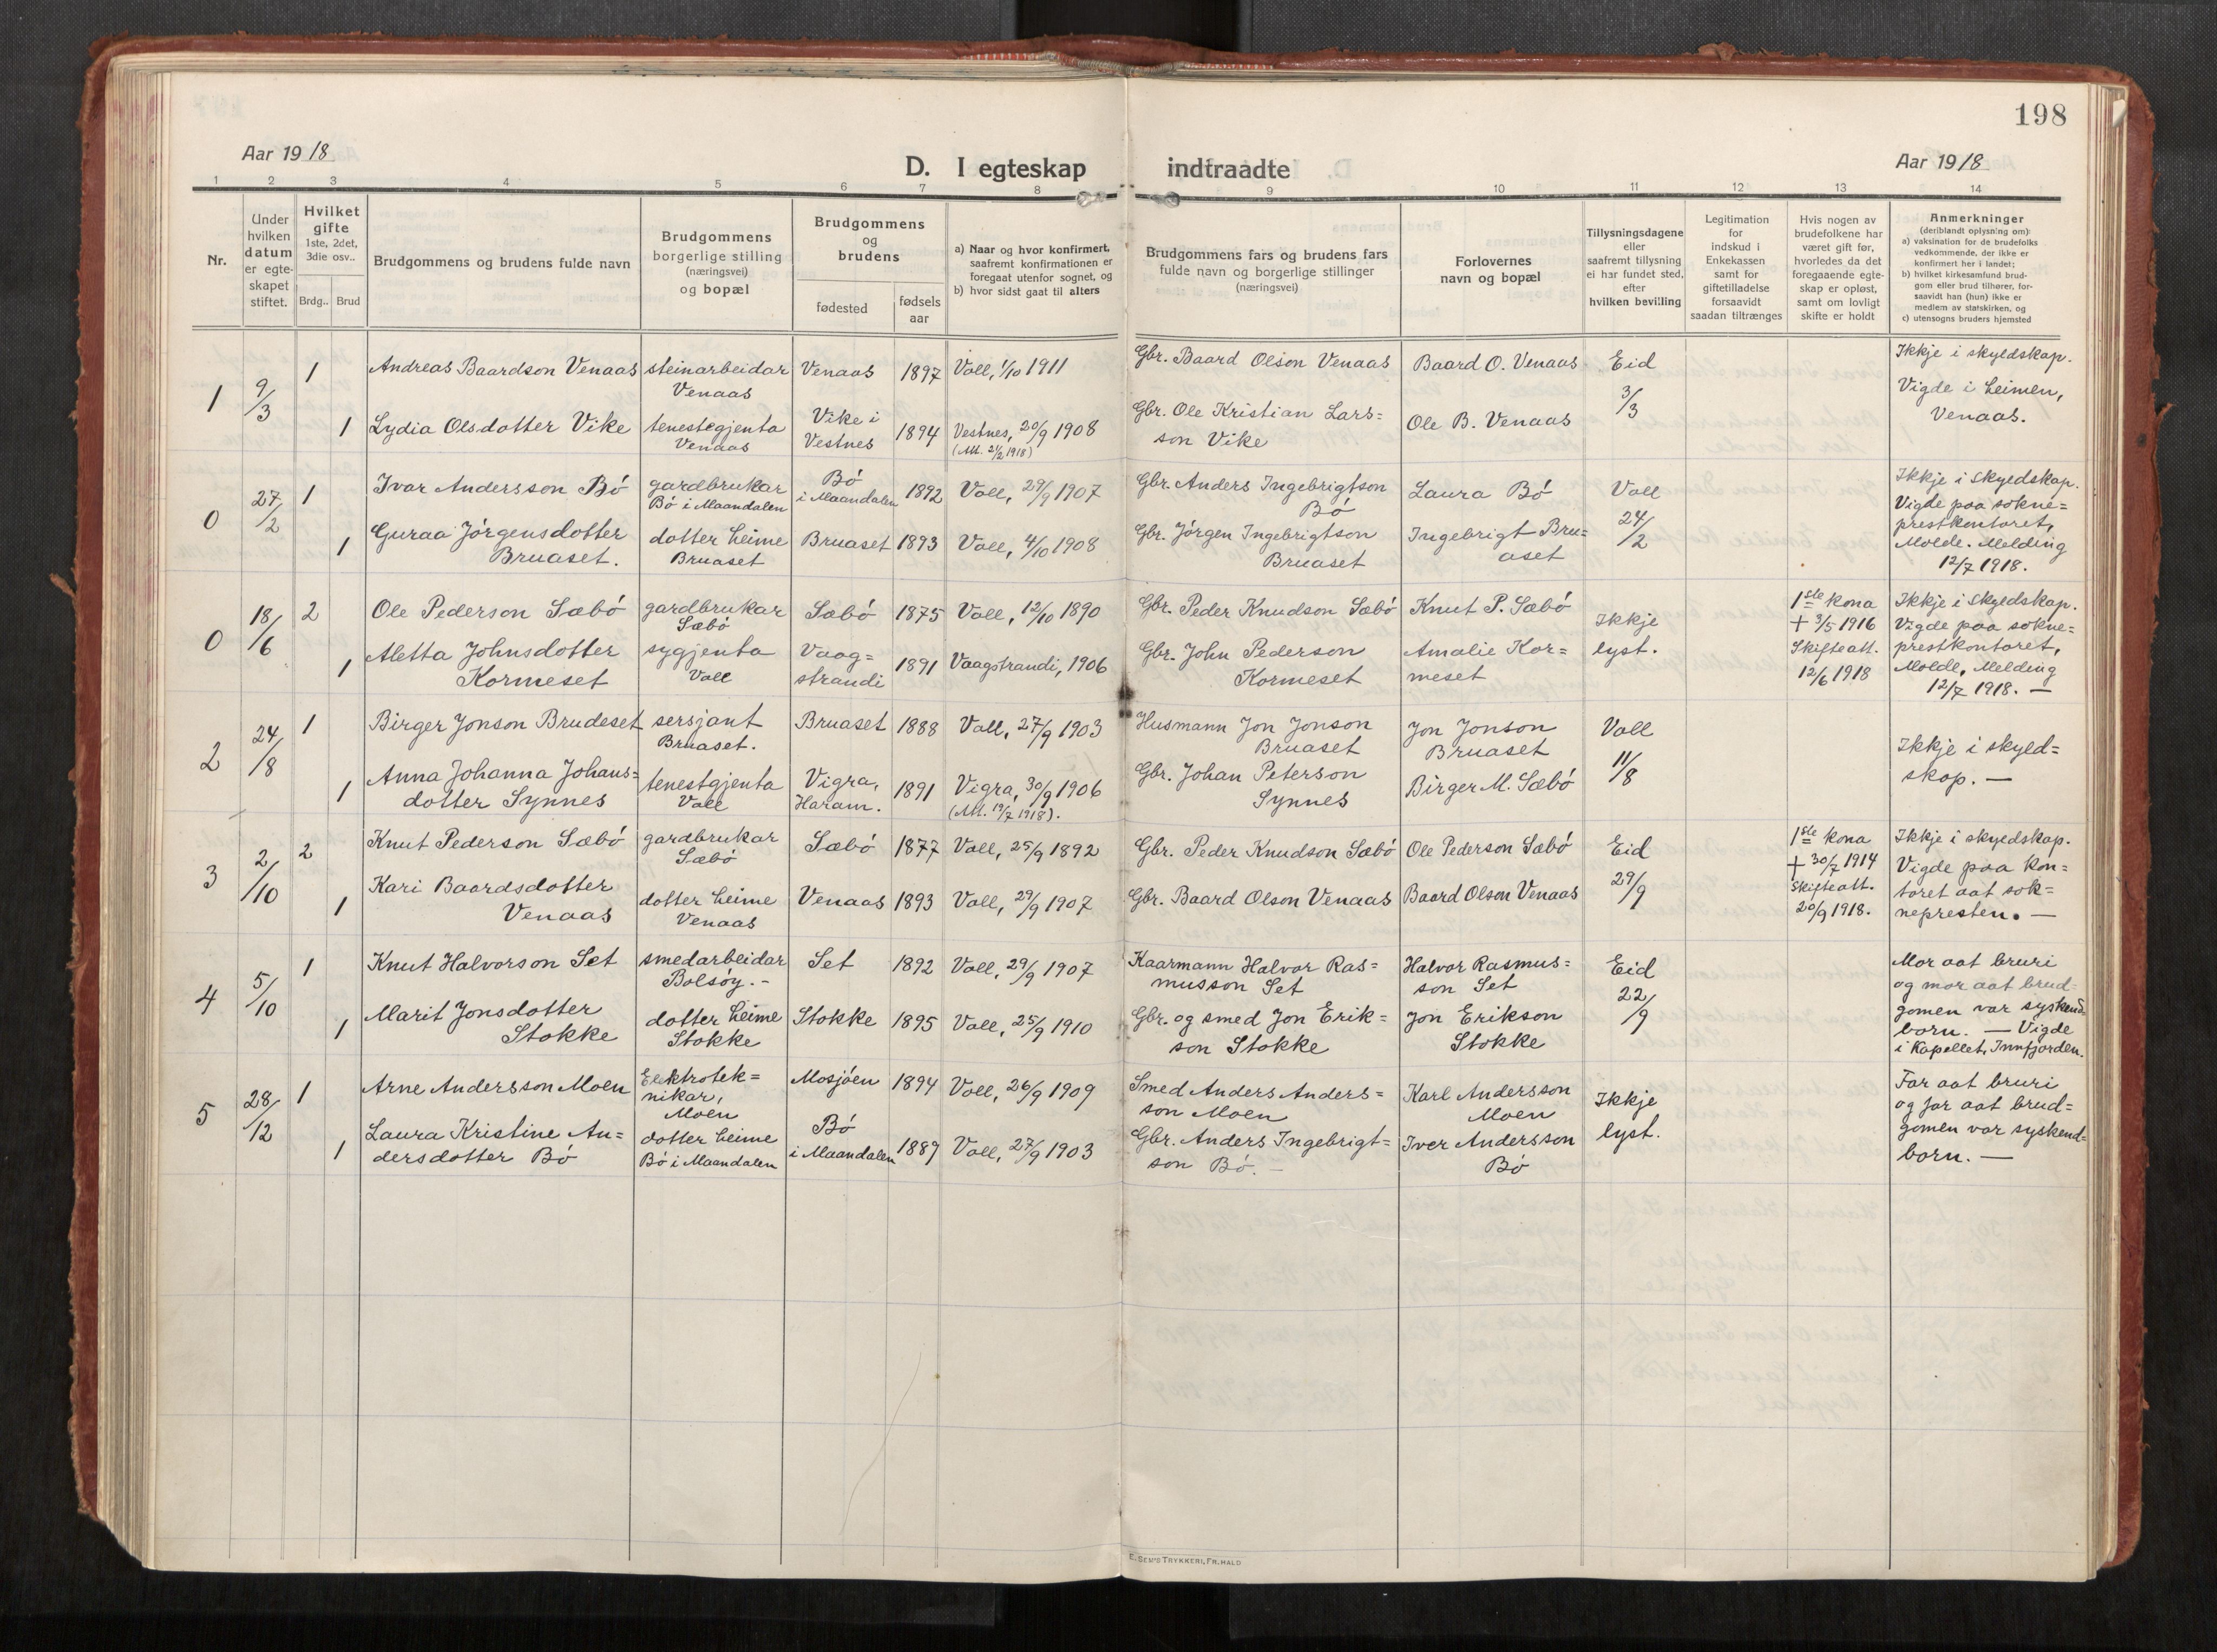 198
Aar 1918
D. I egteskap indtraadte
Aar 1918
1 2 3 4 5 6 7 8 9 10 11 12 13 14
Nr.
Under
hvilken
datum
er egte-
skapet
stiftet.
Hvilket
gifte
1ste, 2det,
3die osv..
Brdg.. Brud
Brudgommens og brudens fulde navn
Brudgommens
borgerlige stilling
(næringsvei)
og bopæl
Brudgommens
og
brudens
fødested
fødsels
aar
a) Naar og hvor konfirmert,
saafremt konfirmationen er
foregaat utenfor sognet, og
b) hvor sidst gaat til alters
Brudgommens fars og brudens fars
fulde navn og borgerlige stillinger
(næringsvei)
Forlovernes
navn og bopæl
Tillysningsdagene
eller
saafremt tillysning
ei har fundet sted,
efter
hvilken bevilling
Legitimation
for
indskud i
Enkekassen
samt for
giftetilladelse
forsaavidt
saadan tiltrænges
Hvis nogen av
brudefolkene har
været gift før,
hvorledes da det
foregaaende egte-
skap er opløst,
samt om lovligt
skifte er holdt
Anmerkninger
(deriblandt oplysning om):
a) vaksination for de brudefolks
vedkommende, der ikke er
konfirmert her i landet;
b) hvilket kirkesamfund brud-
gom eller brud tilhører, for-
saavidt han (hun) ikke er
medlem av statskirken, og
c) utensogns bruders hjemsted
1
9/3
1
Andreas Baardson Venaas
steinarbeidar
Venaas
Venaas
1897
Voll, 1/10 1911
Gbr. Baard Olson Venaas
Baard O. Venaas
Eid
3/3
Ikkje i skyldskap.
Vigde i heimen,
Venaas.
1
Lydia Olsdotter Vike
tenestegjenta
Venaas
Vike i
Vestnes
1894
Vestnes, 20/9 1908
(Att. 21/2 1918)
Gbr. Ole Kristian Lars=
son Vike
Ole B. Venaas
0
27/2
1
Ivar Andersson Bó
gardbrukar
Bó i Maandalen
Bó
i Maandalen
1892
Voll, 29/9 1907
Gbr. Anders Ingebrigtson
Bó
Laura Bó
Voll
24/2
Ikkje i skyldskap.
Vigde paa sokne=
prestkontoret,
Molde. Melding
12/7 1918.
1
Guraa Jórgensdotter
Bruaset.
dotter heime
Bruaset
Bruaset
1893
Voll, 4/10 1908
Gbr. Jórgen Ingebrigtson
Bruaset
Ingebrigt Bru=
aset
0
18/6
2
Ole Pederson Sæbó
gardbrukar
Sæbó
Sæbó
1875
Voll, 12/10 1890
Gbr. Peder Knudson Sæbó
Knut P. Sæbó
Ikkje
lyst.
1ste kona
+ 3/5 1916
Skifteatt.
12/6 1918
Ikkje i skyldskap.
Vigde paa sokne=
prestkontoret,
Molde, Melding
12/7 1918. —
1
Aletta Johnsdotter
Kormeset
sygjenta
Voll
Vaag=
strandi
1891
Vaagstrandi, 1906
Gbr. John Pederson
Kormeset
Amalie Kor=
meset
2
24/8
1
Birger Jonson Brudeset
sersjant
Bruaset.
Bruaset
1888
Voll, 27/9 1903
Husmann Jon Jonson
Bruaset
Jon Jonson
Bruaset
Voll
11/8
Ikkje i skyld=
skap. —
1
Anna Johanna Johans=
dotter Synnes
tenestgjenta
Voll
Vigra,
Haram.
1891
Vigra, 30/9 1906
(Att. 19/7 1918).
Gbr. Johan Peterson
Synnes
Birger M. Sæbó
3
2/10
2
Knut Pederson Sæbó
gardbrukar
Sæbó
Sæbó
1877
Voll, 25/9 1892
Gbr. Peder Knudson Sæbó
Ole Pederson Sæbó
Eid
29/9
1ste kona
+ 30/7 1914
Skifteatt.
20/9 1918.
Ikkje i skyldskap.
Vigde paa kon=
toret aat sok=
nepresten. —
1
Kari Baardsdotter
Venaas
dotter heime
Venaas
Venaas
1893
Voll, 29/9 1907
Gbr. Baard Olson Venaas
Baard Olson Venaas
4
5/10
1
Knut Halvorson Set
smedarbeidar
Bolsóy. -
Set
1892
Voll, 29/9 1907
Kaarmann Halvor Ras=
musson Set
Halvor Rasmus=
son Set
Eid
22/9
Mor aat bruri
og mor aat brud=
gomen var syskend=
born. — Vigde
i Kapellet, Innfjorden.
1
Marit Jonsdotter
Stokke
dotter heime
Stokke
Stokke
1895
Voll, 25/9 1910
Gbr. og smed Jon Erik=
son Stokke
Jon Erikson
Stokke
5
28/12
1
Arne Andersson Moen
Elektrotek=
nikar,
Moen
Mosjóen
1894
Voll, 26/9 1909
Smed Anders Anders=
son Moen
Karl Andersson
Moen
Ikkje
lyst.
Far aat bruri
og far aat brud=
gomen var syskend=
born. —
1
Laura Kristine An=
dersdotter Bó
dotter heime
Bó i Maandalen
Bó
i Maandalen
1889
Voll, 27/9 1903
Gbr. Anders Ingebrigt=
son Bó. -
Iver Andersson
Bó
E. SEM'S TRYKKERI, FR.HALD